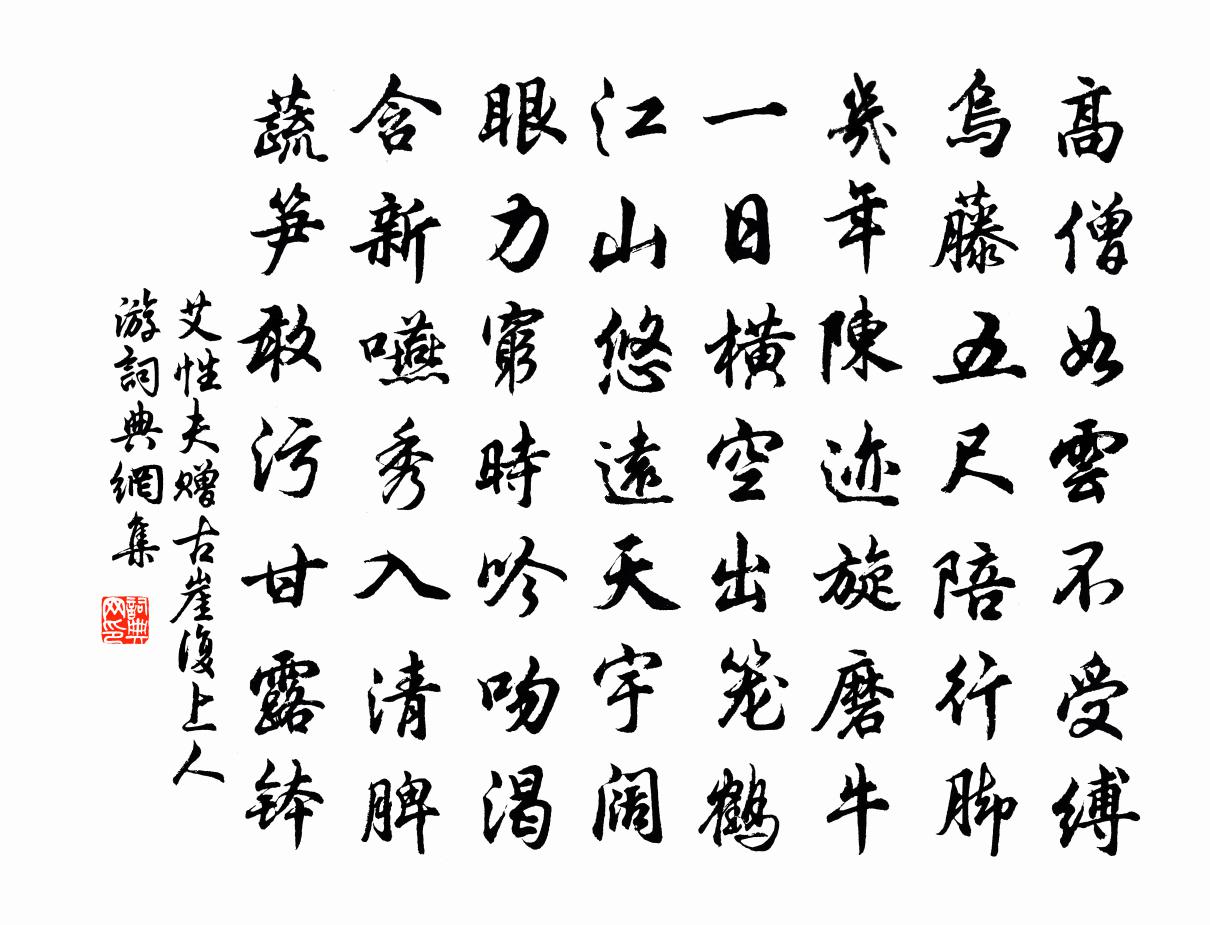 高僧如雲不受縛
烏藤五尺陪行脚
幾年陳迹旋磨牛
一日橫空出笼鶴
江山悠遠天宇阔
眼力窮時吟吻渴
含新嚥秀入清脾
蔬笋敢污甘露钵
艾性夫赠古崖復上人
游詞典網集
詞典
网印